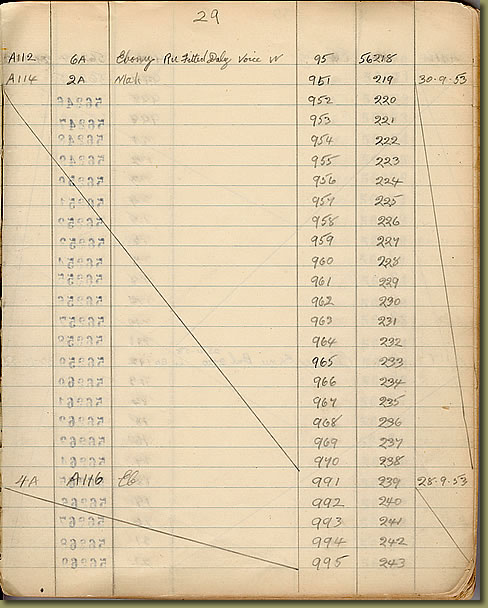 29
A112 6A Ebony Voice W 95 56218
A114 2A Mah 951 219 30-9-53
952 220
953 221
954 222
955 223
956 224
957 225
958 226
959 227
960 228
961 229
962 230
963 231
964 232
965 233
966 234
967 235
968 236
969 237
970 238
4A A116 Eb 991 239 28-9-53
992 240
993 241
994 242
995 243